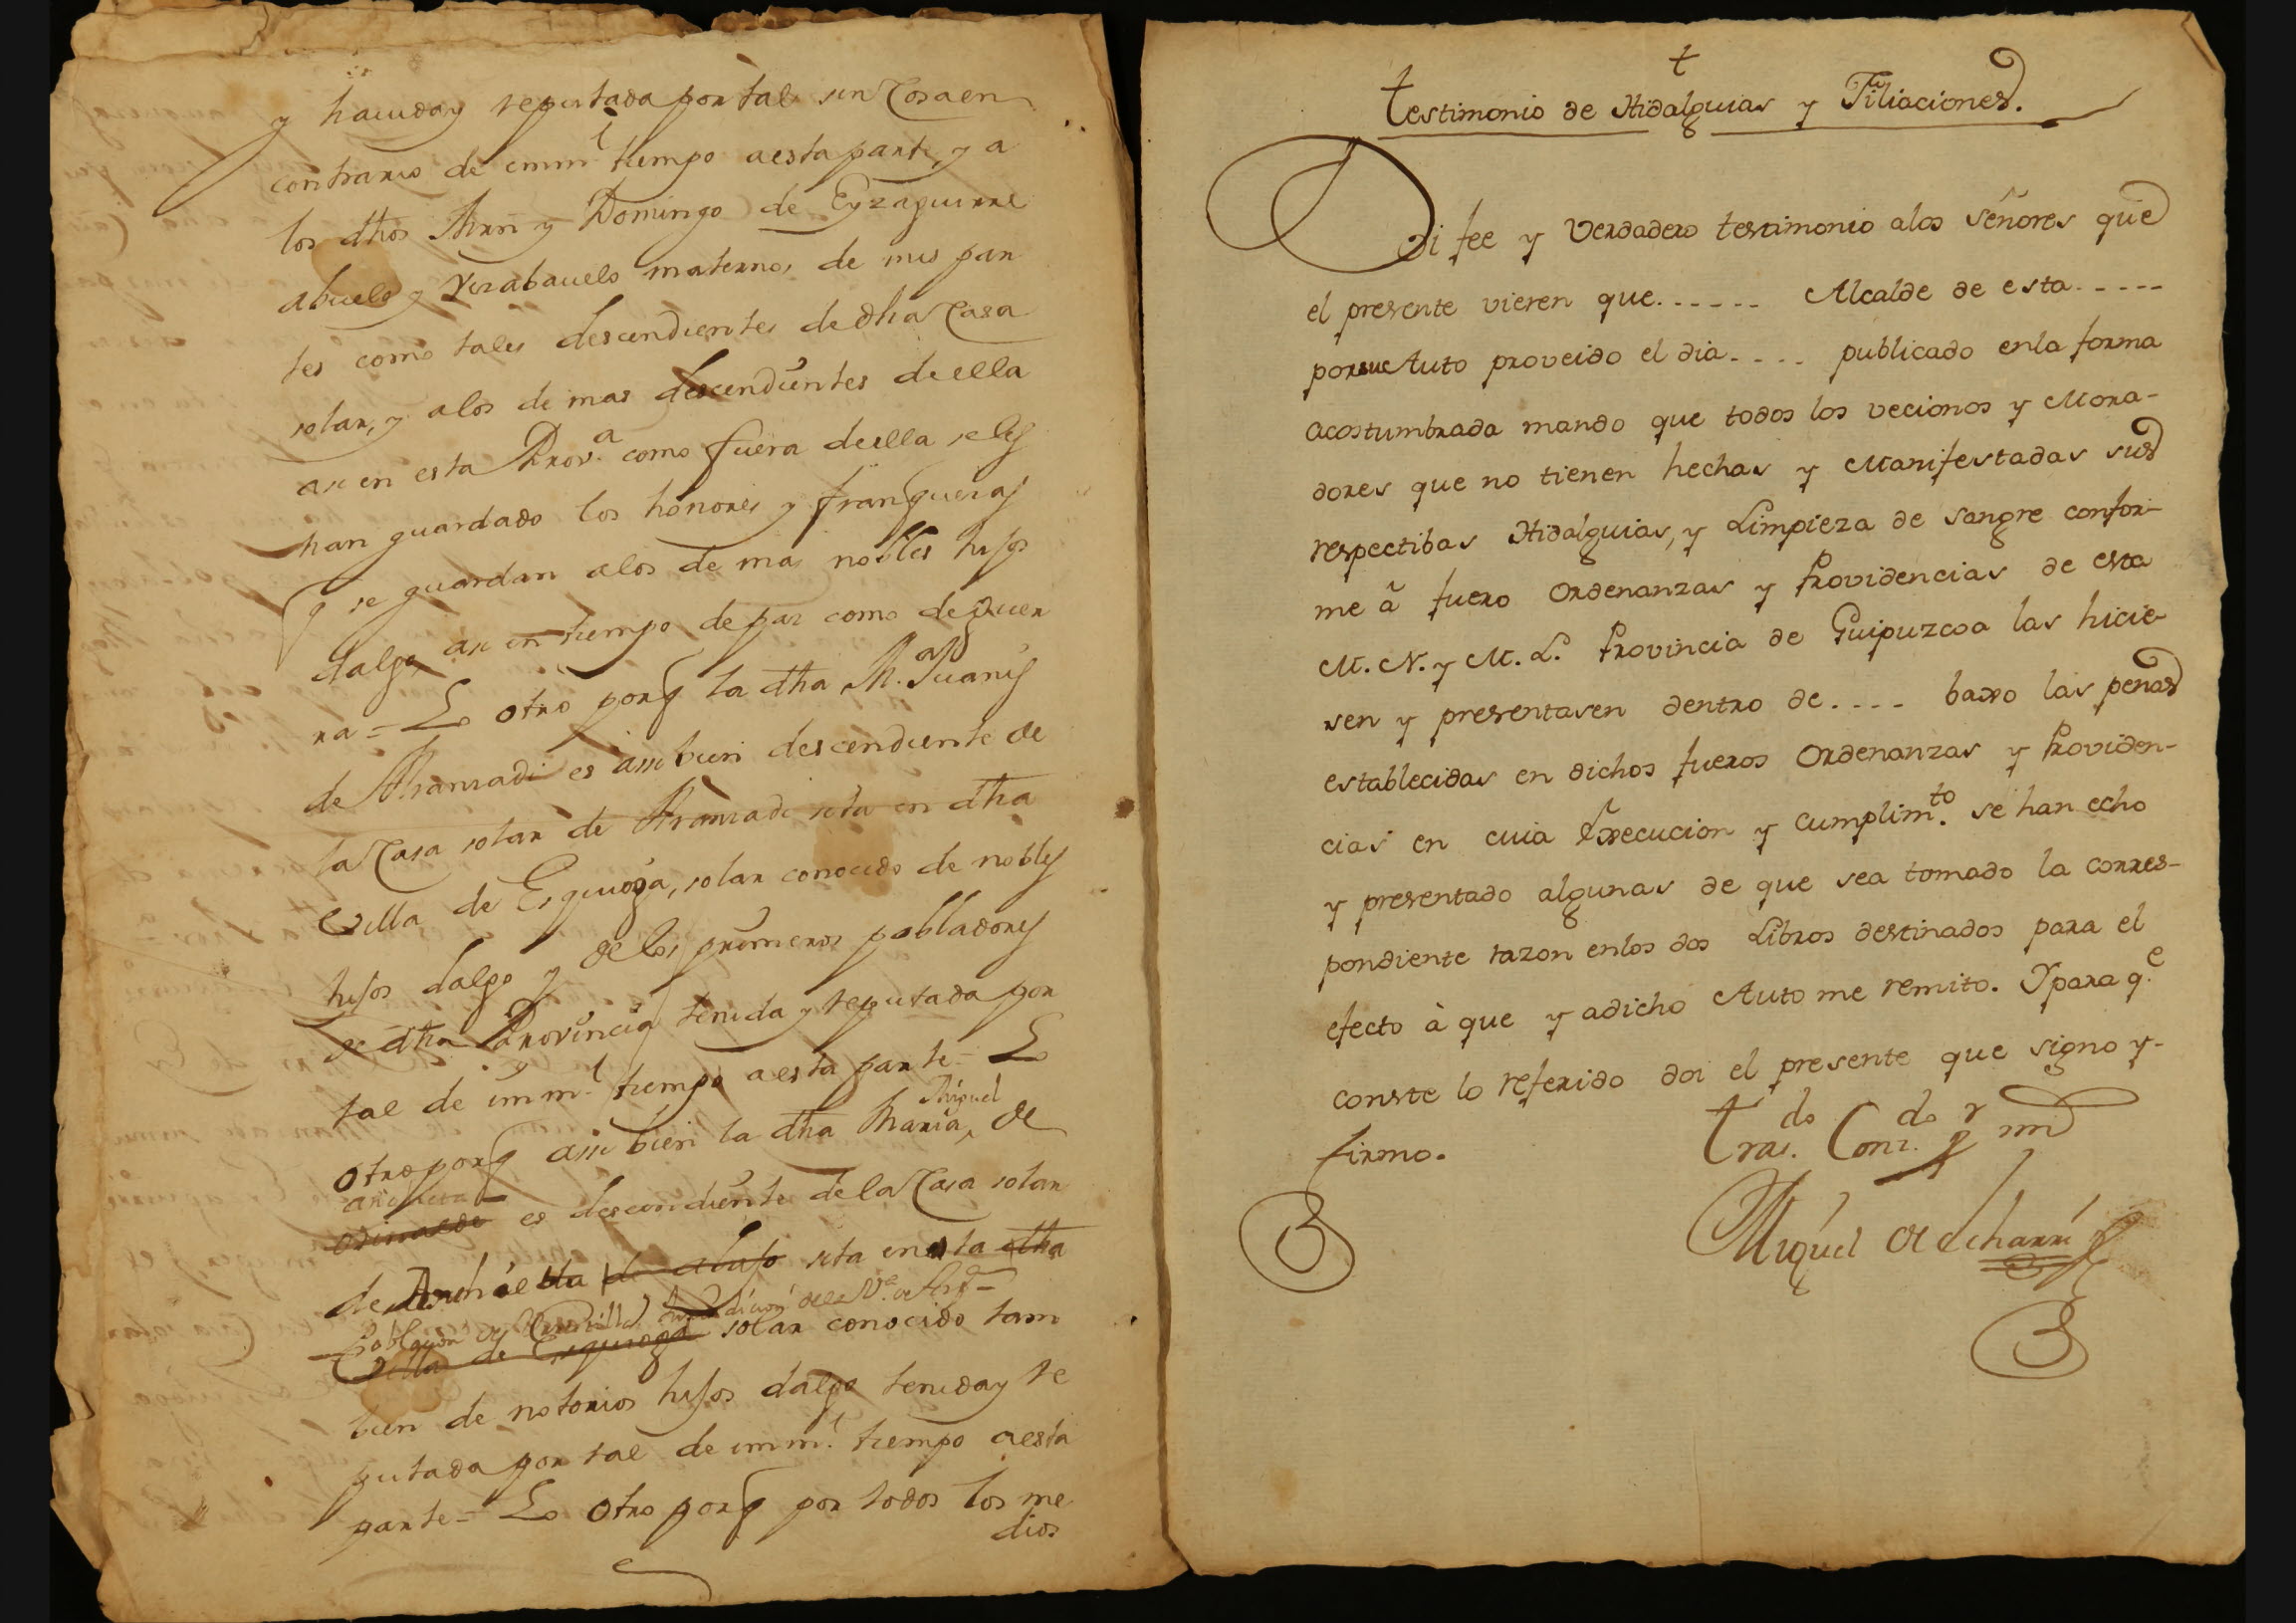 y hauida y reputada por tal sin cosa en
contrario de imml tiempo a esta parte, y a
los dhos Mrn y Domingo de Eyzaguirre
abuelo y Visabauelo maternos de mis par
tes como tales descendientes de dha Casa
solar, y a los de mas descendientes de ella
asi en esta Prov.a como fuera de ella se les
han guardado los honores y franquezas
q se guardan a los de mas nobles hijos
dalgo asi en tiempo de paz como de guer
ra = Lo otro porq la dha M.a Juanis
de Aramadi es assi bien descendiente de
la Casa solar de Aramadi sita en dha
Villa de Esquioga, solar conocido de nobles
hijos dalgo y de los primeros pobladores
de dha Provincia tenida y reputada por
tal de imml tiempo a esta parte = Lo
otro porq assi bien la dha Maria Miguel de
es descendiente de la Casa solar
de sita en esta dha
Poblacion de
Villa de Esquioga solar conocido tam
bien de notorios hijos dalgo tenida y re
putada por tal de imml tiempo a esta
parte = Lo otro porq por todos los me
dios
t
Testimonio de Hidalguias y Filiaciones.
Di fee y Verdadero testimonio alos Señores que
el presente vieren que...... Alcalde de esta.....
por su Auto proveido el dia.... publicado enla forma
acostumbrada mando que todos los vecionos y Mora-
dores que no tienen hechas y Manifestadas sus
respectibas Hidalguias, y Limpieza de sangre confor-
me â fuero Ordenanzas y Providencias de esta
M. N. y M. L. Provincia de Guipuzcoa las hicie-
sen y presentasen dentro de.... baxo las penas
establecidas en dichos fueros Ordenanzas y Providen-
cias en cuia Execucion y cumplim.to se han echo
y presentado algunas de que sea tomado la corres-
pondiente razon enlos dos Libros destinados para el
efecto à que y adicho Auto me remito. Y para q.e
conste lo referido doi el presente que signo y-
firmo.
Tras.do Conz.do y
Miguel